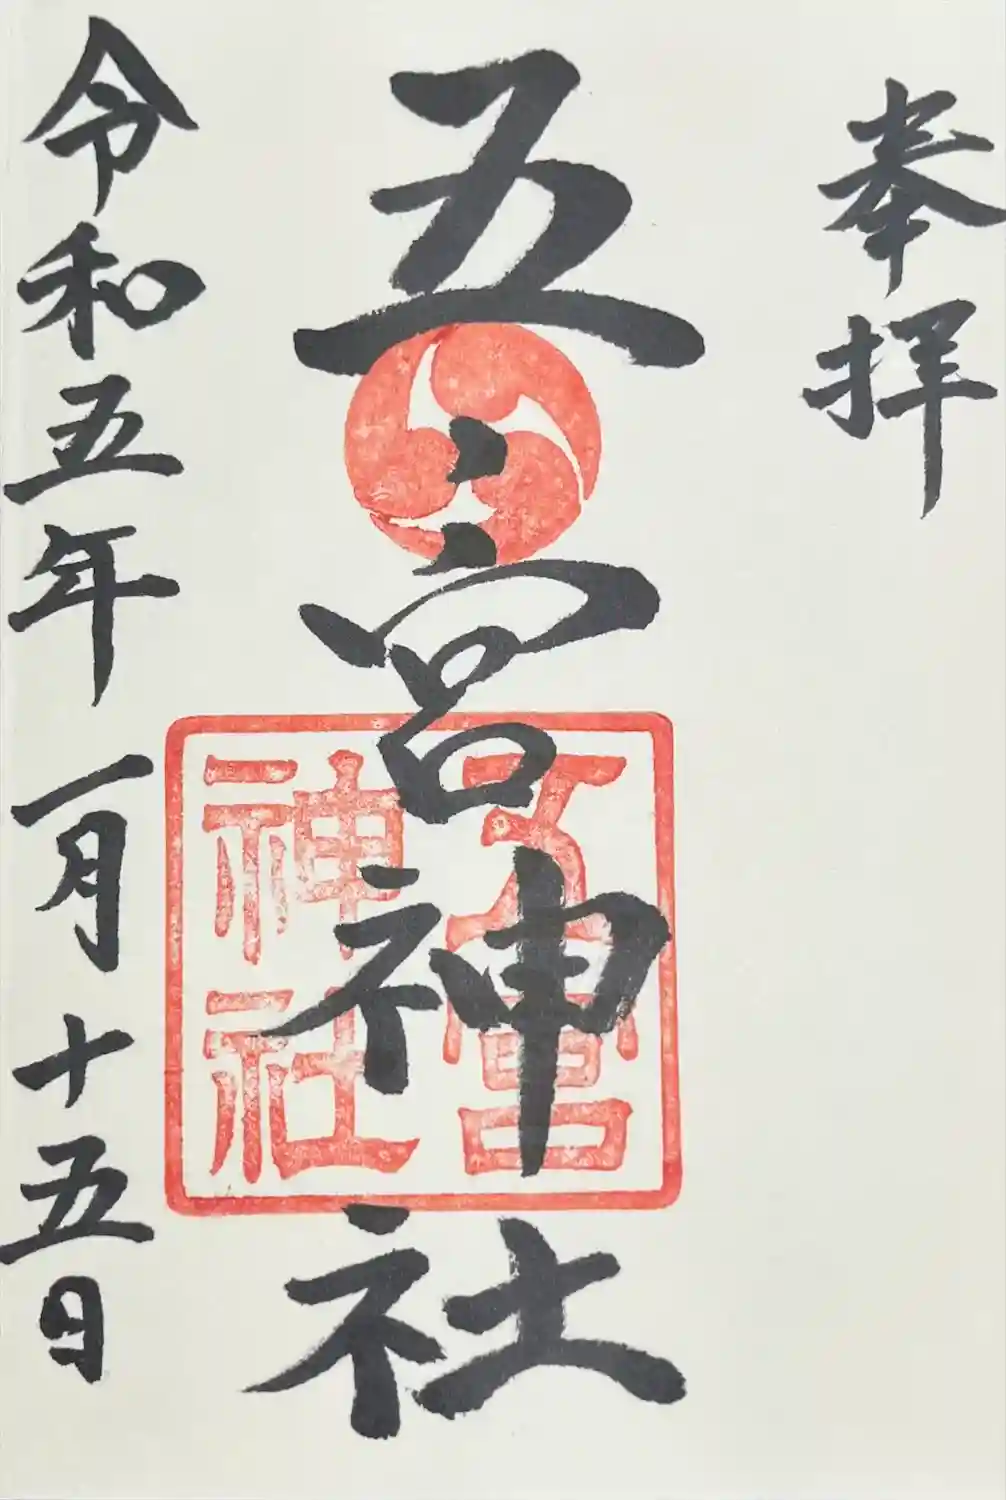 奉拝
五宮神社
五宮
神社
令和五年一月十五日